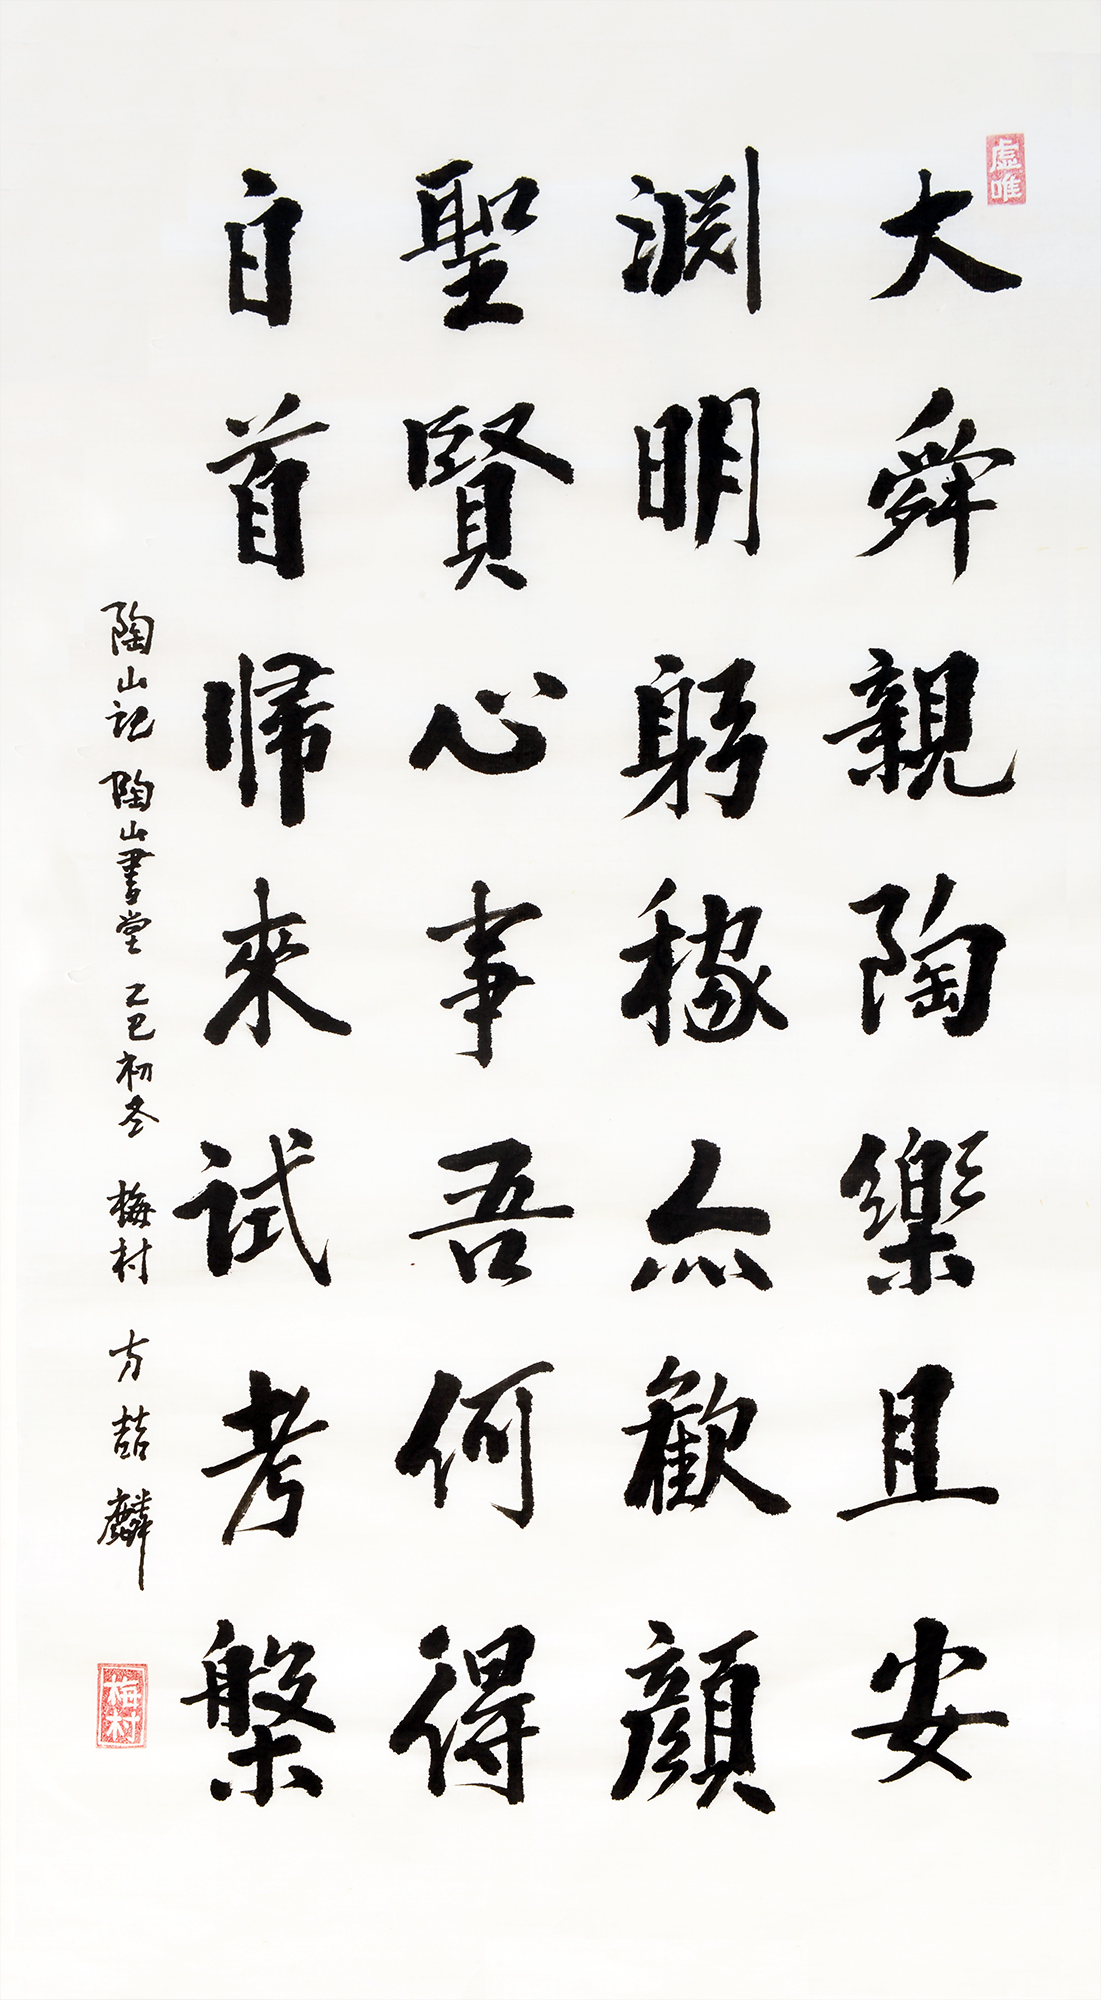 虛唯
大舜親陶樂且安
淵明躬稼亦歡顔
聖賢心事吾何得
白首歸來試考槃
陶山記 陶山書堂 乙巳初冬 梅村 方喆麟
梅村